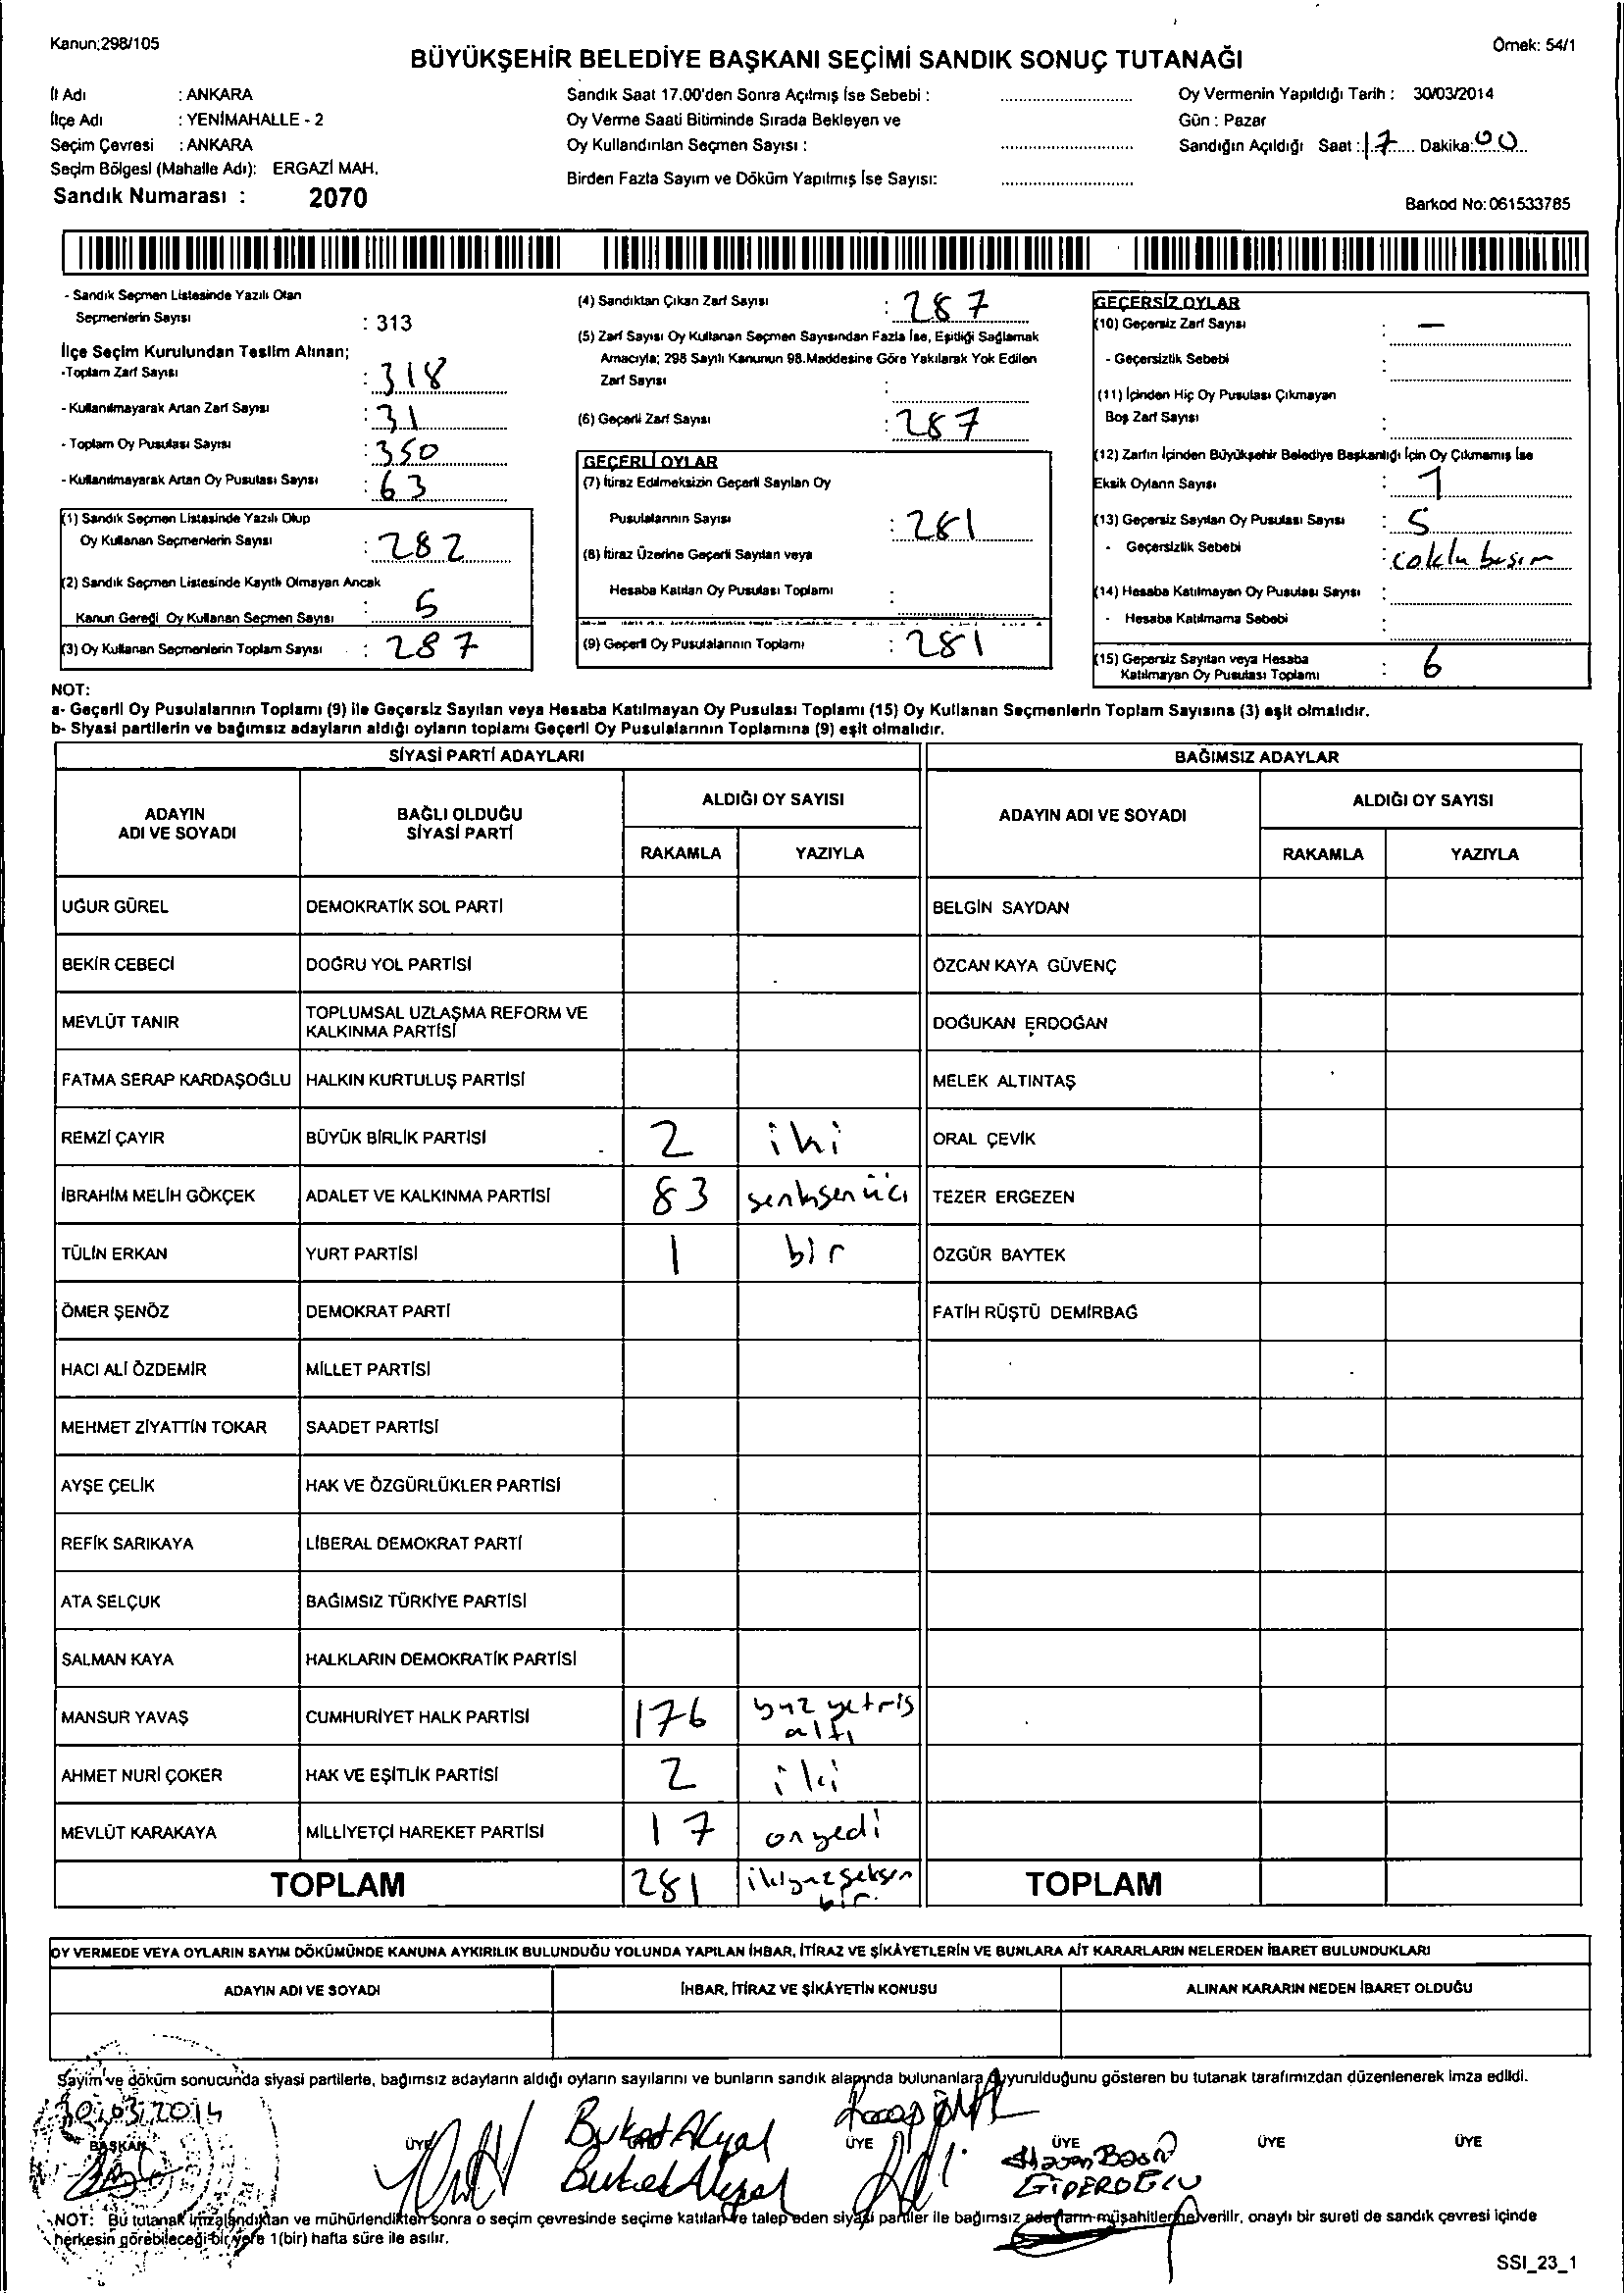 Kanun;298/105
Örnek: 54/1
BÜYÜKŞEHİR BELEDİYE BAŞKANI SEÇİMİ SANDIK SONUÇ TUTANAĞI
İl Adı : ANKARA
İlçe Adı : YENİMAHALLE - 2
Seçim Çevresi : ANKARA
Seçim Bölgesi (Mahalle Adı): ERGAZİ MAH.
Sandık Numarası : 2070
Sandık Saat 17.00'den Sonra Açılmış İse Sebebi : ............
Oy Verme Saati Bitiminde Sırada Bekleyen ve
Oy Kullandırılan Seçmen Sayısı : ............
Birden Fazla Sayım ve Döküm Yapılmış İse Sayısı: ............
Oy Vermenin Yapıldığı Tarih : 30/03/2014
Gün : Pazar
Sandığın Açıldığı Saat : 17 Dakika: 00
Barkod No: 061533785
- Sandık Seçmen Listesinde Yazılı Olan
Seçmenlerin Sayısı : 313
İlçe Seçim Kurulundan Teslim Alınan;
-Toplam Zarf Sayısı : 318
- Kullanılmayarak Artan Zarf Sayısı : 31
- Toplam Oy Pusulası Sayısı : 350
- Kullanılmayarak Artan Oy Pusulası Sayısı : 63
(1) Sandık Seçmen Listesinde Yazılı Olup
Oy Kullanan Seçmenlerin Sayısı : 282
(2) Sandık Seçmen Listesinde Kayıtlı Olmayan Ancak
Kanun Gereği Oy Kullanan Seçmen Sayısı : 5
(3) Oy Kullanan Seçmenlerin Toplam Sayısı : 287
(4) Sandıktan Çıkan Zarf Sayısı : 287
(5) Zarf Sayısı Oy Kullanan Seçmen Sayısından Fazla İse, Eşitliği Sağlamak
Amacıyla; 298 Sayılı Kanunun 98.Maddesine Göre Yakılarak Yok Edilen
Zarf Sayısı :
(6) Geçerli Zarf Sayısı : 287
GEÇERLİ OYLAR
(7) İtiraz Edilmeksizin Geçerli Sayılan Oy
Pusulalarının Sayısı : 281
(8) İtiraz Üzerine Geçerli Sayılan veya
Hesaba Katılan Oy Pusulası Toplamı :
(9) Geçerli Oy Pusulalarının Toplamı : 281
GEÇERSİZ OYLAR
(10) Geçersiz Zarf Sayısı : —
- Geçersizlik Sebebi :
(11) İçinden Hiç Oy Pusulası Çıkmayan
Boş Zarf Sayısı :
(12) Zarfın İçinden Büyükşehir Belediye Başkanlığı İçin Oy Çıkmamış İse
Eksik Oyların Sayısı : 1
(13) Geçersiz Sayılan Oy Pusulası Sayısı : 5
- Geçersizlik Sebebi : çoklu basım
(14) Hesaba Katılmayan Oy Pusulası Sayısı :
- Hesaba Katılmama Sebebi :
(15) Geçersiz Sayılan veya Hesaba
Katılmayan Oy Pusulası Toplamı : 6
NOT:
a- Geçerli Oy Pusulalarının Toplamı (9) ile Geçersiz Sayılan veya Hesaba Katılmayan Oy Pusulası Toplamı (15) Oy Kullanan Seçmenlerin Toplam Sayısına (3) eşit olmalıdır.
b- Siyasi partilerin ve bağımsız adayların aldığı oyların toplamı Geçerli Oy Pusulalarının Toplamına (9) eşit olmalıdır.
SİYASİ PARTİ ADAYLARI BAĞIMSIZ ADAYLAR
ADAYIN
ADI VE SOYADI
BAĞLI OLDUĞU
SİYASİ PARTİ
ALDIĞI OY SAYISI
RAKAMLA YAZIYLA
ADAYIN ADI VE SOYADI
ALDIĞI OY SAYISI
RAKAMLA YAZIYLA
UĞUR GÜREL DEMOKRATİK SOL PARTİ BELGİN SAYDAN
BEKİR CEBECİ DOĞRU YOL PARTİSİ ÖZCAN KAYA GÜVENÇ
MEVLÜT TANIR TOPLUMSAL UZLAŞMA REFORM VE
KALKINMA PARTİSİ DOĞUKAN ERDOĞAN
FATMA SERAP KARDAŞOĞLU HALKIN KURTULUŞ PARTİSİ MELEK ALTINTAŞ
REMZİ ÇAYIR BÜYÜK BİRLİK PARTİSİ 2 iki ORAL ÇEVİK
İBRAHİM MELİH GÖKÇEK ADALET VE KALKINMA PARTİSİ 83 TEZER ERGEZEN
TÜLİN ERKAN YURT PARTİSİ 1 bir ÖZGÜR BAYTEK
ÖMER ŞENÖZ DEMOKRAT PARTİ FATİH RÜŞTÜ DEMİRBAĞ
HACI ALİ ÖZDEMİR MİLLET PARTİSİ
MEHMET ZİYATTİN TOKAR SAADET PARTİSİ
AYŞE ÇELİK HAK VE ÖZGÜRLÜKLER PARTİSİ
REFİK SARIKAYA LİBERAL DEMOKRAT PARTİ
ATA SELÇUK BAĞIMSIZ TÜRKİYE PARTİSİ
SALMAN KAYA HALKLARIN DEMOKRATİK PARTİSİ
MANSUR YAVAŞ CUMHURİYET HALK PARTİSİ 176 yüz yetmiş
altı
AHMET NURİ ÇOKER HAK VE EŞİTLİK PARTİSİ 2 iki
MEVLÜT KARAKAYA MİLLİYETÇİ HAREKET PARTİSİ 17 onyedi
TOPLAM 281 ikiyüzseksen
bir. TOPLAM
OY VERMEDE VEYA OYLARIN SAYIM DÖKÜMÜNDE KANUNA AYKIRILIK BULUNDUĞU YOLUNDA YAPILAN İHBAR, İTİRAZ VE ŞİKÂYETLERİN VE BUNLARA AİT KARARLARIN NELERDEN İBARET BULUNDUKLARI
ADAYIN ADI VE SOYADI İHBAR, İTİRAZ VE ŞİKÂYETİN KONUSU ALINAN KARARIN NEDEN İBARET OLDUĞU
Sayım ve döküm sonucunda siyasi partilerle, bağımsız adayların aldığı oyların sayılarını ve bunların sandık alanında bulunanlara duyurulduğunu gösteren bu tutanak tarafımızdan düzenlenerek imza edildi.
30/03/2014
BAŞKAN ÜYE ÜYE ÜYE ÜYE ÜYE
Hasan Basri
GİDEROĞLU
NOT: Bu tutanak imzalandıktan ve mühürlendikten sonra o seçim çevresinde seçime katılan ve talep eden siyasi partiler ile bağımsız adayların müşahitlerine verilir, onaylı bir sureti de sandık çevresi içinde
herkesin görebileceği bir yere 1(bir) hafta süre ile asılır.
SSI_23_1